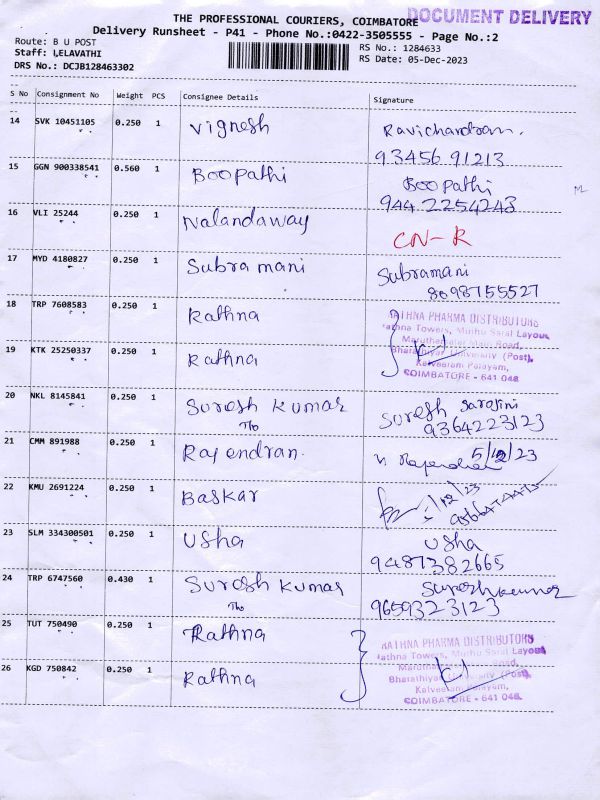 THE PROFESSIONAL COURIERS, COIMBATORE
DOCUMENT DELIVERY
Delivery Runsheet - P41 - Phone No.:0422-3505555 - Page No.:2
Route: B U POST
RS No.: 1284633
Staff: LELAVATHI
RS Date: 05-Dec-2023
DRS No.: DCJB128463302
S No Consignment No Weight PCS Consignee Details Signature
14 SVK 10451105 0.250 1 Vignesh Ravichandran.
93456 91213
15 GGN 900338541 0.560 1 Boopathi Boopathi
944 2254243
16 VLI 25244 0.250 1 Nalandaway CN-R
17 MYD 4180827 0.250 1 Subramani Subramani
8098755527
18 TRP 7608583 0.250 1 Rathna
RATHNA PHARMA DISTRIBUTORS
Rathna Towers, Muthu Saral Layout,
Maruthamalai Main Road,
Bharathiyar University (Post),
Kalveeram Palayam,
COIMBATORE - 641 046
19 KTK 25250337 0.250 1 Rathna
20 NKL 8145841 0.250 1 Suresh Kumar Suresh Sarojini
9364223123
21 CMM 891988 0.250 1 Rajendran. 5/12/23
22 KMU 2691224 0.250 1 Baskar
23 SLM 334300501 0.250 1 Usha Usha
9487382665
24 TRP 6747560 0.430 1 Suresh Kumar Sureshkumar
9659323123
25 TUT 750490 0.250 1 Rathna
RATHNA PHARMA DISTRIBUTORS
Rathna Towers, Muthu Saral Layout,
Road,
Bharathiyar University (Post),
Kalveeram Palayam,
COIMBATORE - 641 046.
26 KGD 750842 0.250 1 Rathna